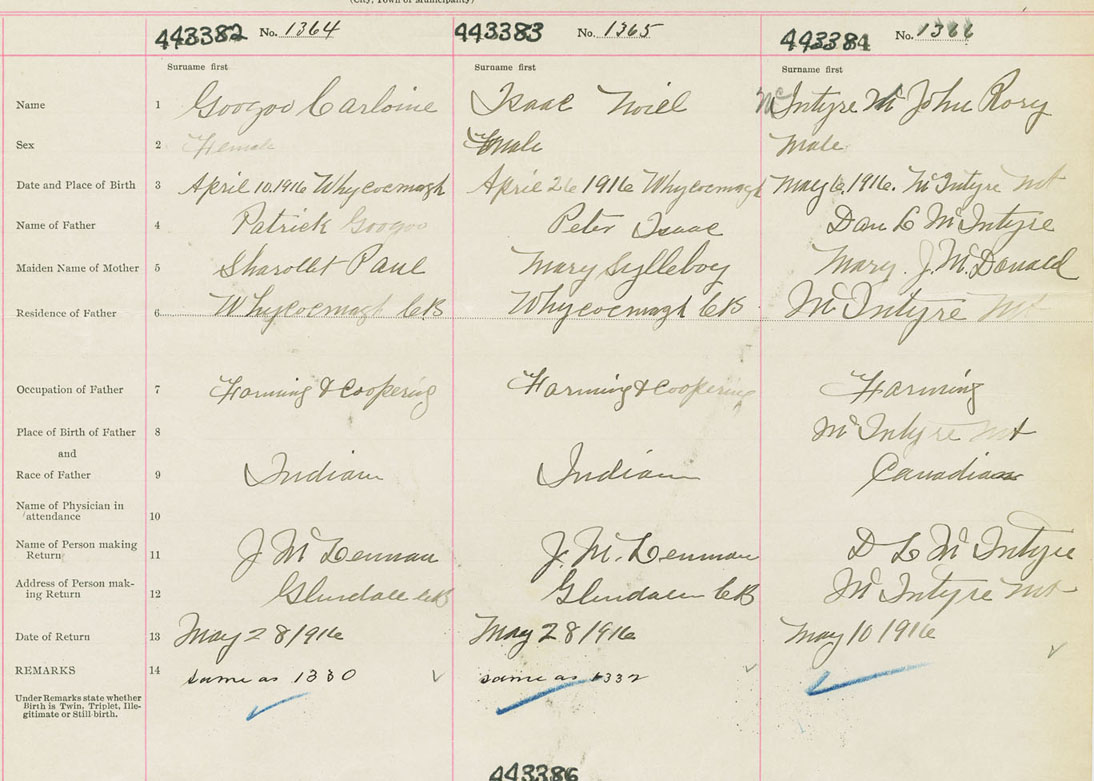 (City, Town or Municipality)
443382 No. 1364 443383 No. 1365 443384 No.
Surname first Surname first Surname first
Name 1 Googoo Carloine Isaac Noiel McIntyre John Rory
Sex 2 Female Male Male
Date and Place of Birth 3 April 10.1916 Whycocmagh April 26 1916 Whycocmagh May 6, 1916. McIntyre Mt
Name of Father 4 Patrick Googoo Peter Isaac Dan L McIntyre
Maiden Name of Mother 5 Sharollet Paul Mary Sylleboy Mary J. McDonald
Residence of Father 6 Whycocmagh CB Whycocmagh CB McIntyre Mt
Occupation of Father 7 Farming & Coopering Farming & Coopering Farming
Place of Birth of Father 8 McIntyre Mt
and
Race of Father 9 Indian Indian Canadian
Name of Physician in
attendance 10
Name of Person making
Return 11 J McLennan J. McLennan D L McIntyre
Address of Person mak-
ing Return 12 Glendale CB Glendale CB McIntyre Mt
Date of Return 13 May 28/1916 May 28/1916 May 10 1916
REMARKS 14 same as 1330 same as 1332
Under Remarks state whether
Birth is Twin, Triplet, Ille-
gitimate or Still birth.
443386